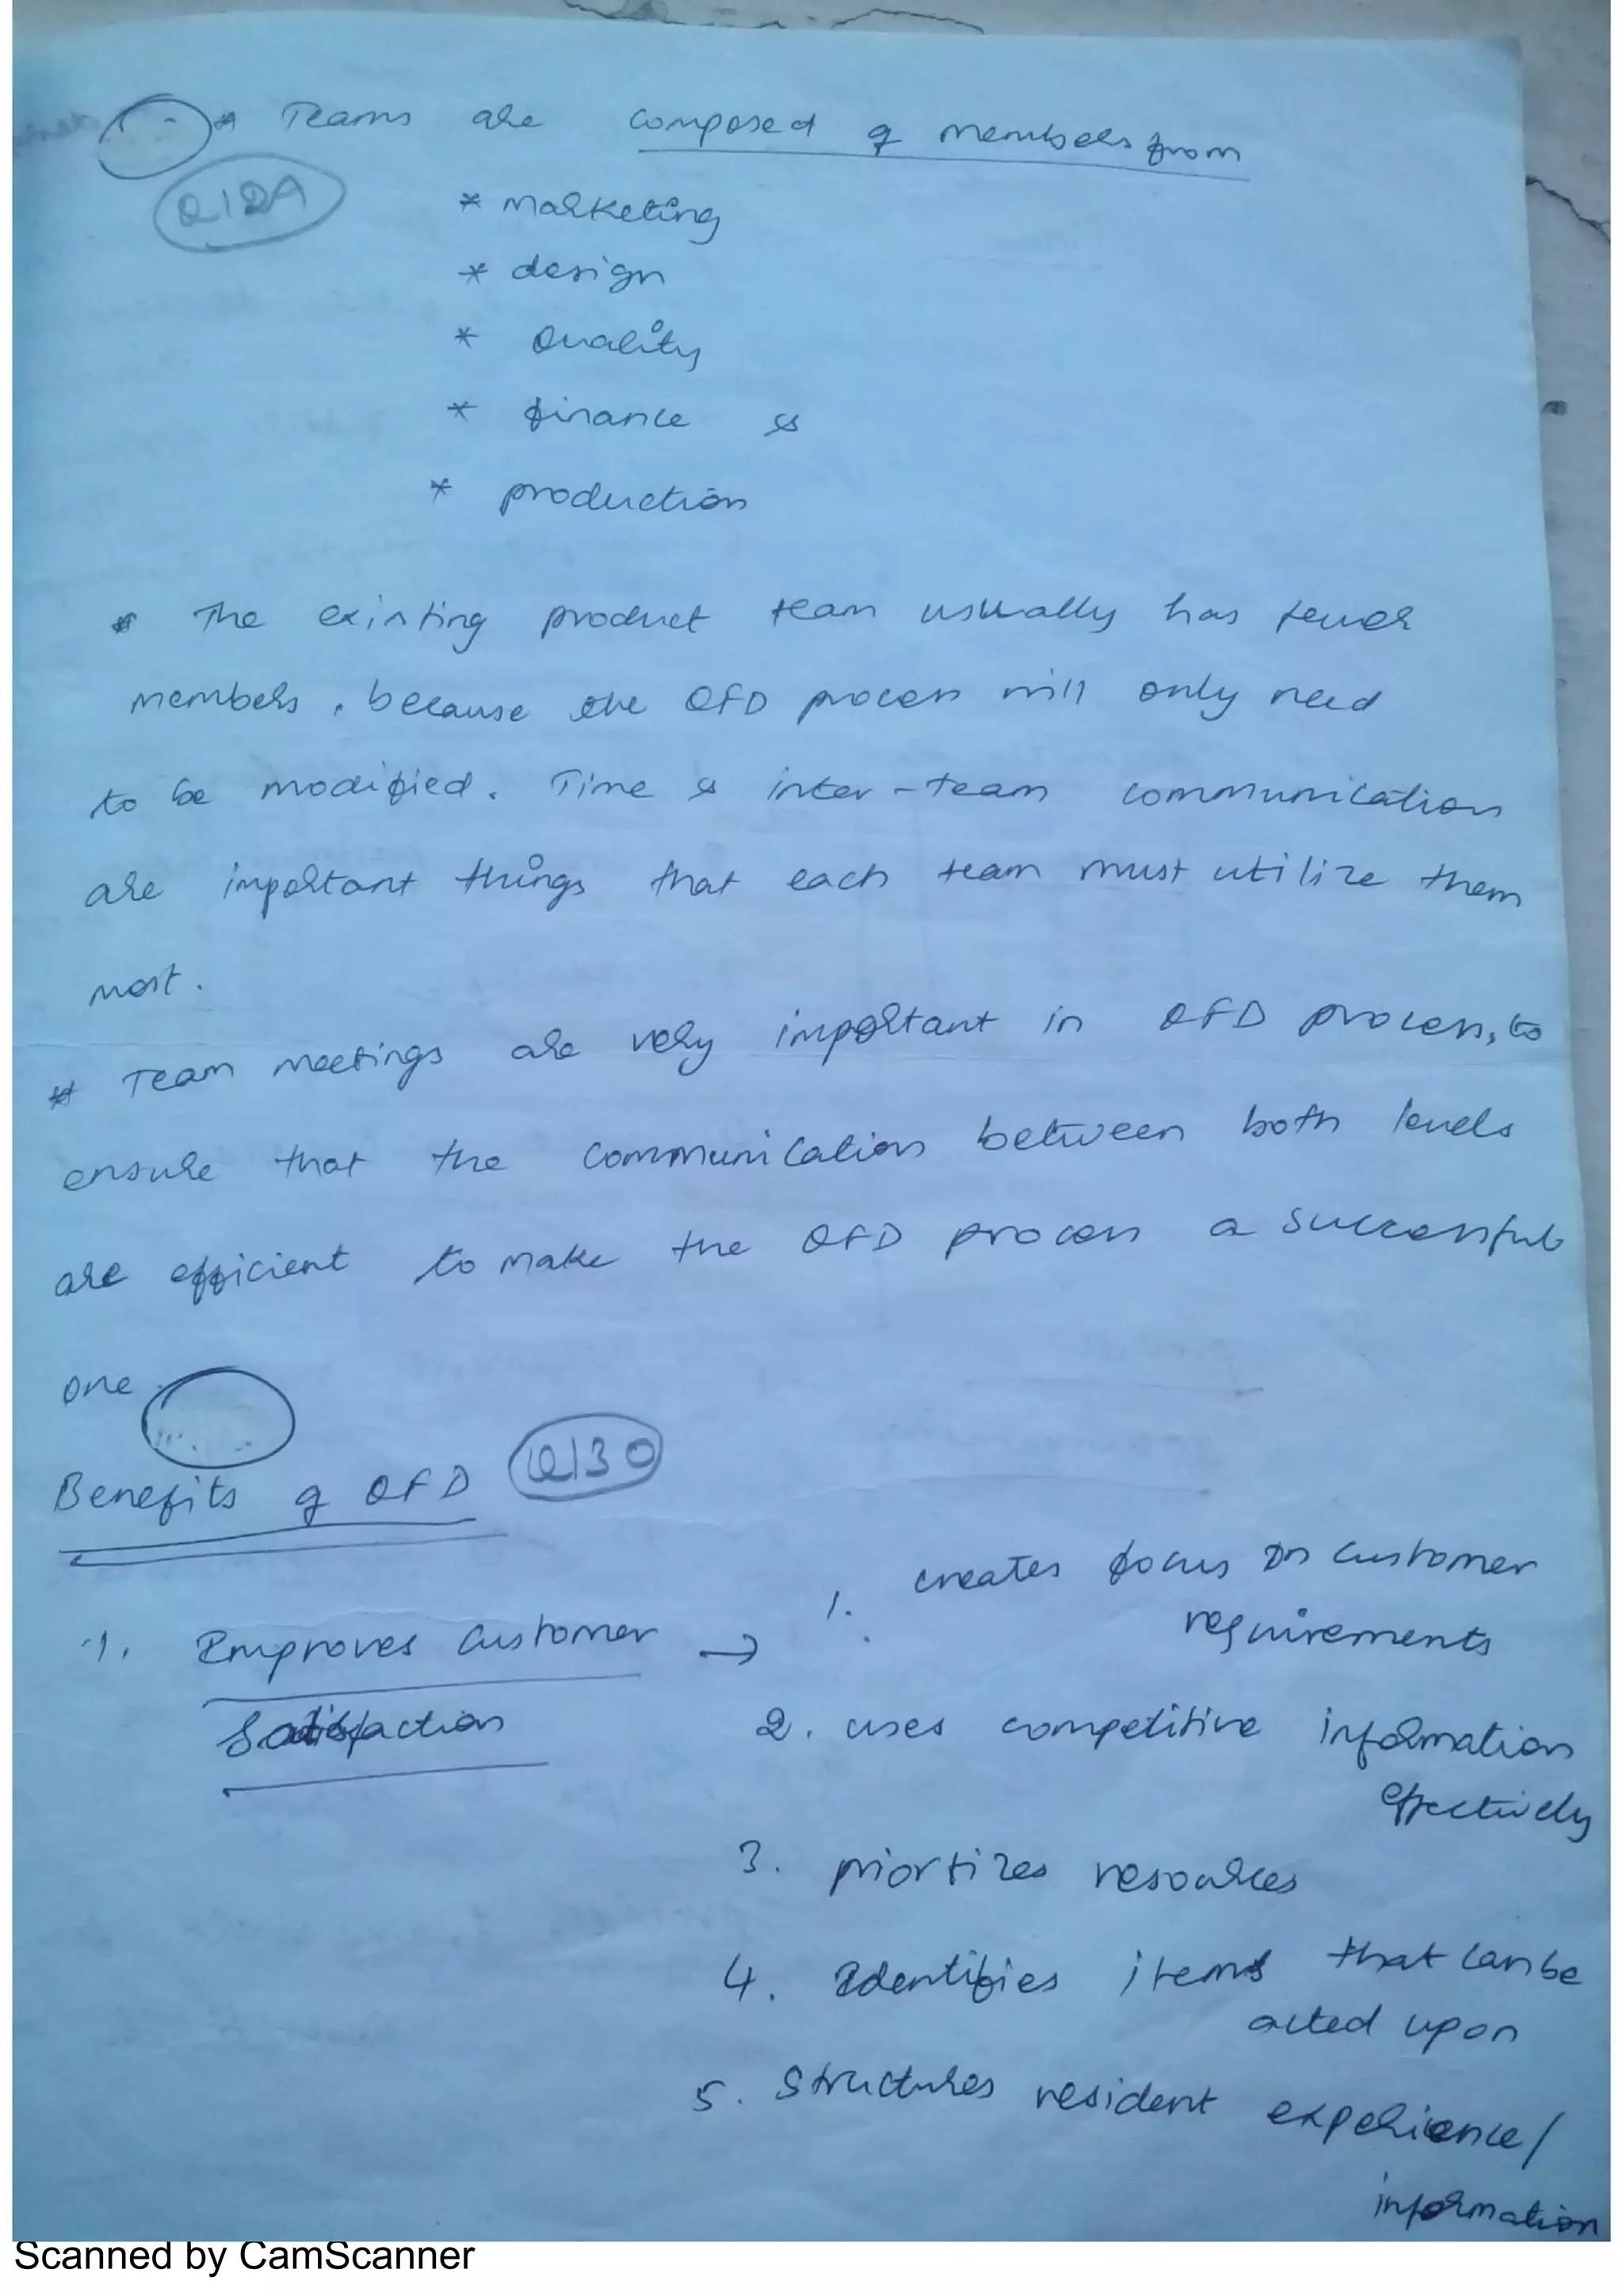 * Teams are composed of members from
Q129
* marketing
* design
* Quality
* finance &
* production
* The existing product team usually has fewer
members, because the QFD process will only need
to be modified. Time & inter-team communication
are important things that each team must utilize them
most.
* Team meetings are very important in QFD process, to
ensure that the communication between both levels
are efficient to make the QFD process a successful
one.
Benefits of QFD Q130
1. Improves customer → 1. creates focus on customer
requirements
Satisfaction
2. uses competitive information
effectively
3. priortizes resources
4. Identifies items that can be
acted upon
5. Structures resident experience/
information
Scanned by CamScanner